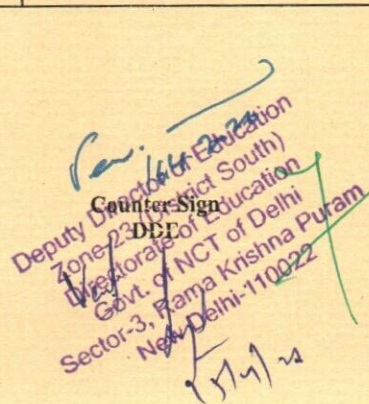 Counter Sign
DDE
Deputy Director of Education
Zone-23 (District South)
Directorate of Education
Govt. of NCT of Delhi
Sector-3, Rama Krishna Puram
New Delhi-110022